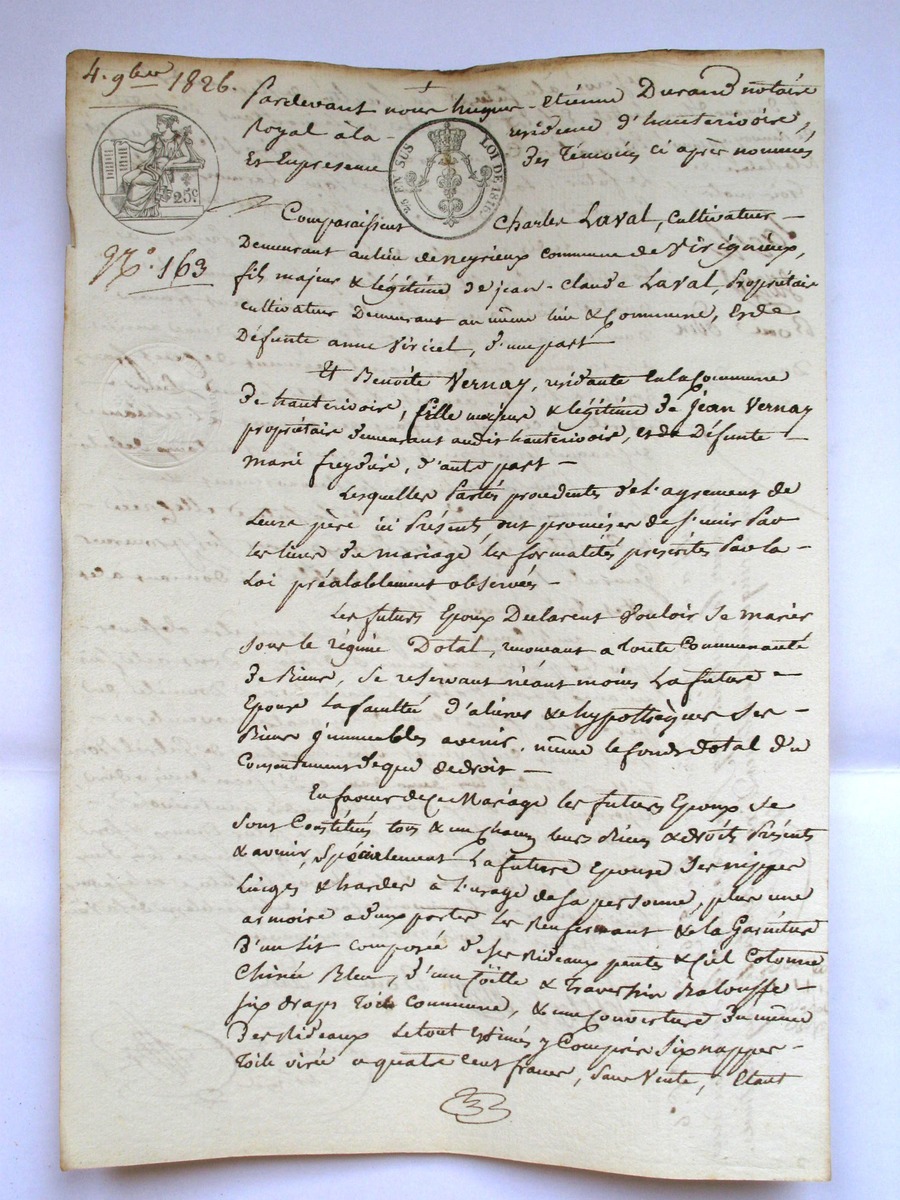 4. 9bre 1826.
Pardevant nous hugues-Etienne Durand notaire
Royal à la residence d'hauterivoire,
Et En presence des Témoins ci après nommés
25 EN SUS
LOI DE 1816.
25c
No. 163
Comparaissent Charles Laval, Cultivateur
Demeurant au lieu de neyrieux commune de Virigneux,
fils majeur & légitime de jean-Claude Laval, Propriétaire
cultivateur Demeurant au même lieu & Commune, et de
Défunte anne Viricel, d'une part
Et Benoite Vernay, residante En la Commune
De hauterivoire, fille majeure & légitime de jean Vernay
propriétaire demeurant audit hauterivoire, et de Défunte
marie freydière, d'autre part
Lesquelles Parties procedentes de l'agrement de
leurs père ici Présents ont promises de s'unir Par
les liens du mariage les formalités prescrites Par la
Loi préalablement observées
Les futurs Epoux Declarent vouloir se marier
sous le régime Dotal, renonçant a toute Communauté
de Biens, se reservant néant moins La future
Epouse La faculté d'aliener & hypothèquer ses
Biens immeubles avenir, même le fonds dotal du
Consentement de que de droit
En faveur de Ce Mariage les futurs Epoux se
sont Constitués tous & un chacun leurs Biens & droits Présents
& avenir, Spécialement La future Epouse Des nippes
Linges & hardes à L'usage de sa personne, plus une
armoire a deux portes les Renfermant & de la Garniture
D'un Lit composée de ses Rideaux pentes & Ciel Cotonne
Chinée Bleu, d'une & Traversin Balouffe
six draps Toile Commune, & une Couverture du même
Des Rideaux Le tout Estimés y Compris Six nappes
Toile virée a quatre Cent francs, sans Vente, Etant